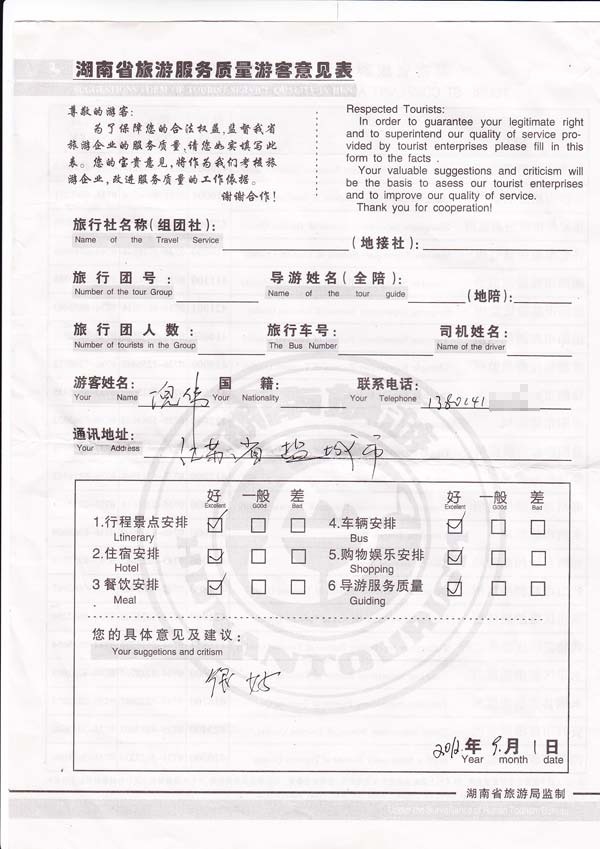 湖南省旅游服务质量游客意见表
SUGGESTIONS FORM OF TOURIST SERVICE QUALITY IN HUN
尊敬的游客:
为了保障您的合法权益,监督我省
旅游企业的服务质量,请您如实填写此
表。您的宝贵意见,将作为我们考核旅
游企业,改进服务质量的工作依据。
谢谢合作!
Respected Tourists:
In order to guarantee your legitimate right
and to superintend our quality of service pro-
vided by tourist enterprises please fill in this
form to the facts .
Your valuable suggestions and criticism will
be the basis to asess our tourist enterprises
and to improve our quality of service.
Thank you for cooperation!
旅行社名称(组团社): (地接社):
Name of the Travel Service
旅行团号: 导游姓名(全陪) (地陪):
Number of the tour Group Name of the tour guide
旅行团人数: 旅行车号: 司机姓名:
Number of tourists in the Group The Bus Number Name of the driver
游客姓名: 国籍: 联系电话: 1380141
Your Name Your Nationality Your Telephone
通讯地址: 江苏省盐城市
Your Address
好 一般 差 好 一般 差
Excellent GOOd Bad Excellent GOOd Bad
1.行程景点安排 4.车辆安排
Ltinerary Bus
2.住宿安排 5.购物娱乐安排
Hotel Shopping
3 餐饮安排 6 导游服务质量
Meal Guiding
您的具体意见及建议:
Your suggetions and critism
很好
2012年9月1日
Year month date
湖南省旅游局监制
Under the Surveillance of Hunan Tourism Bureau